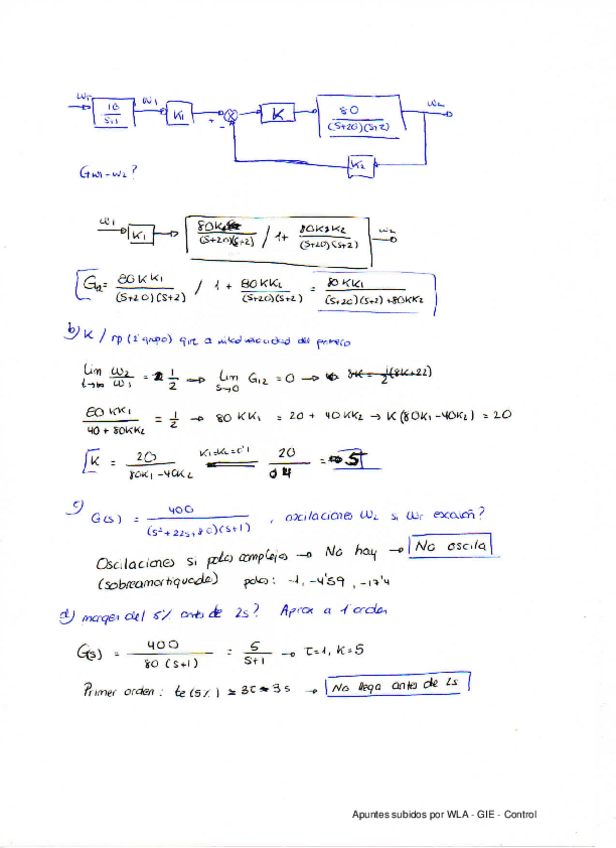 Wr 16/(s+1) W1 K1 + - K 80/((s+20)(s+2)) W2
K2
Gw1-w2?
W1 K1 80K/((s+20)(s+2)) / 1+ 80KK2/((s+20)(s+2)) W2
G12= 80KK1/((s+20)(s+2)) / 1 + 80KK2/((s+20)(s+2)) = 80KK1/((s+20)(s+2)+80KK2)
b) K / rp (2º grupo) gire a mitad velocidad del primero
Lim t→∞ W2/W1 = 1/2 → Lim s→0 G12 = 0 →
80KK1/(40+80KK2) = 1/2 → 80KK1 = 20 + 40KK2 → K(80K1-40K2) = 20
K = 20/(80K1-40K2) K1=K2=0'1 20/04 = 5
c) G(s) = 400/((s²+22s+80)(s+1)), oscilaciones W2 si Wr escalón?
Oscilaciones si polos complejos → No hay → No oscila
(sobreamortiguado) polos: -1, -4'59, -17'4
d) margen del 5% antes de 2s? Aprox a 1º orden
G(s) = 400/(80(s+1)) = 5/(s+1) → τ=1, K=5
Primer orden: te(5%) ≈ 3τ ≈ 3s → No llega antes de 2s
Apuntes subidos por WLA - GIE - Control